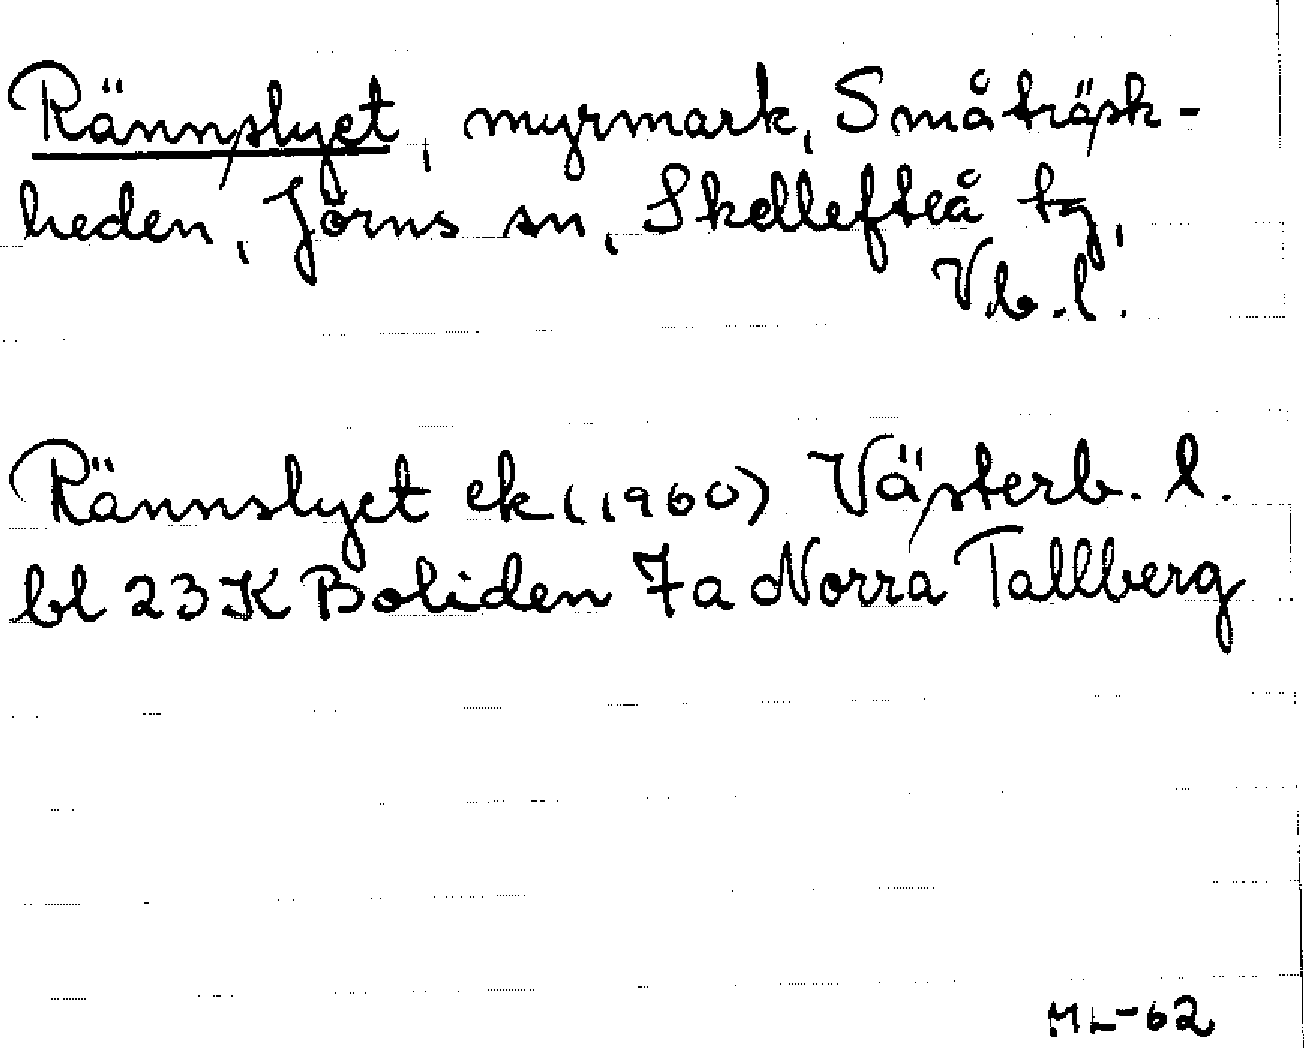 Rännslyet, myrmark, Småträsk-
heden, Jörns sn, Skellefteå tg,
Vb.l.
Rännslyet ek (1960) Västerb. l.
bl 23K Boliden 7a Norra Tallberg
ML-62